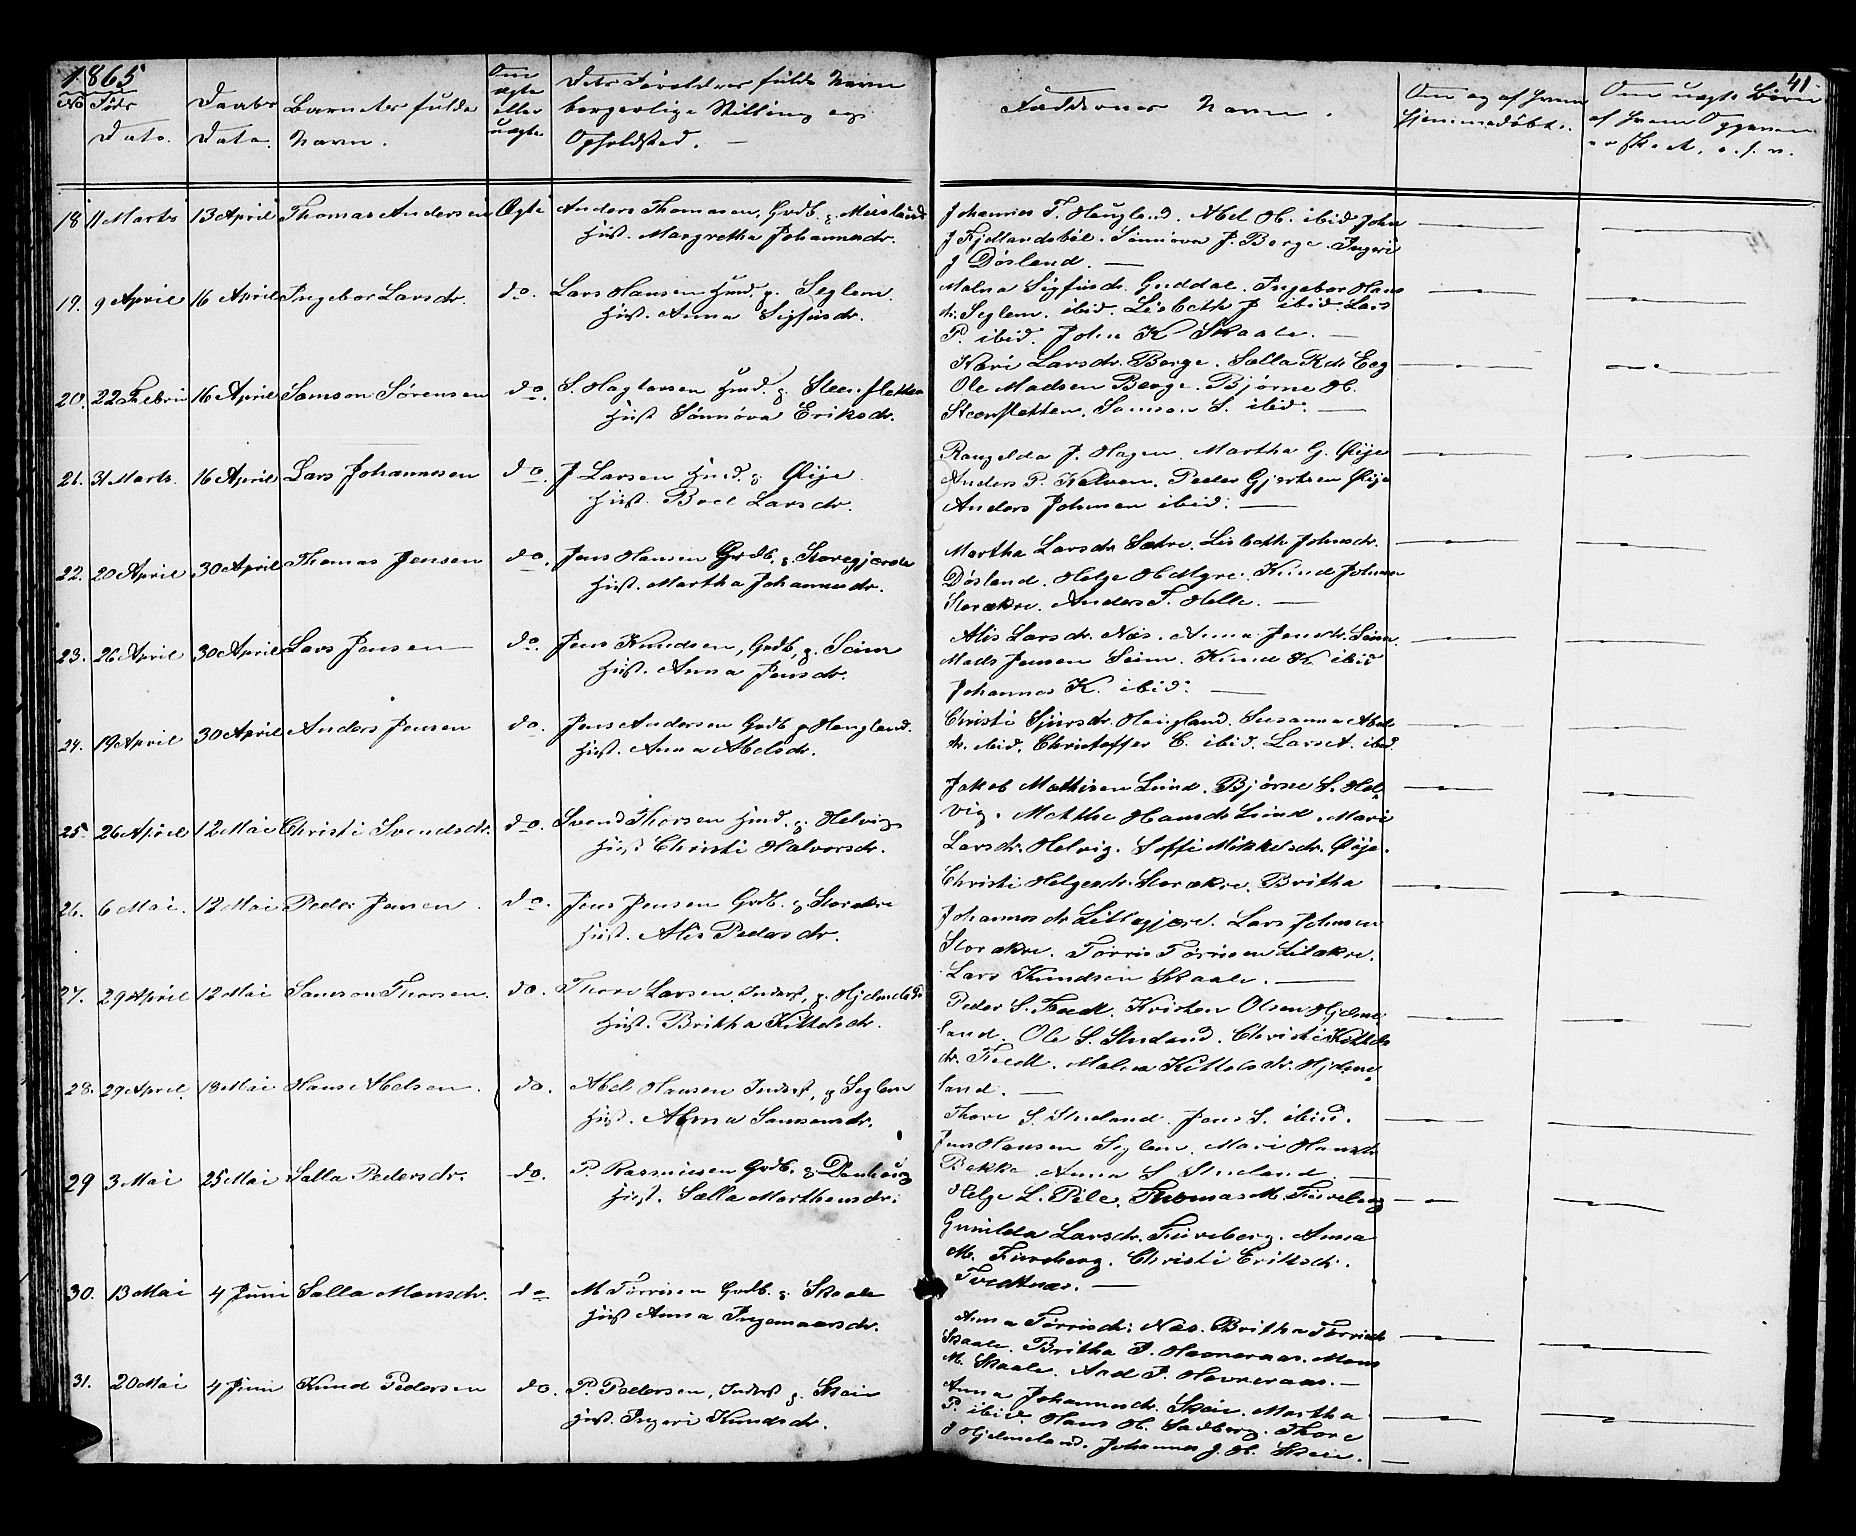 1865
41.
No
Føds
Dato.
Daabs
Dato.
Barnets fulde
Navn.
Om
ægte
eller
uægte
Dets Foreldres fulde Navn
borgerlige Stilling og
Opholdsted. —
Faddernes Navn.
Om og af hvem
hjemmedøbt.
Om uægte Børn
af hvem
er skeet, o. s. v.
18 11 Marts 13 April Thomas Andersen Ægte Anders Thomasen, Grdb. g.
Hust. Margretha Johannesdr.
Johannes T. Heugland. Abel H. ibid John
J Fjellandsbøe. Sønnøva J. Berge. Ingeri
J Døsland. —
19. 9 April 16 April Ingebor Larsdr. do. Lars Hansen Husd. g. Seglem.
Hust. Anna Sigfusdr.
Malna Sigfusdr. Guddal. Ingebor Hans
dr. Seglem. ibid. Lisbeth J ibid. Lars
P. ibid. John K Skaale. —
20. 22 Febru 16 April Samson Sørensen do. S. Hagtorsen Husd. g. Steensletten
Hust Sønnøva Eriksdr.
Kari Larsdr. Berge. Salla K dr Eeg
Ole Madsen Berge. Bjørne H.
Steensletten. Samson S. ibid. —
21. 31 Marts. 16 April Lars Johannesen do. J Larsen Husd. g. Øije.
Hust. Boel Larsdr.
Rangelda J. Hagen. Martha G. Øije
Anders P. Kalven. Peder Gjertsen Øije
Anders Johnsen ibid: —
22. 20 April 30 April Thomas Jensen do. Jens Hansen Grdb. g. Storegjerde
Hust. Martha Johannesdr.
Martha Larsdr Sætre. Lisbeth Johnsdr.
Døsland. Helge H Mgre. Knud Johnsen
Storækre. Anders T. Helle. —
23. 26 April 30 April Lars Jensen do. Jens Knudsen, Grdb, g. Seim
Hust. Anna Jensdr.
Alis Larsdr. Næs. Anna Jensdr. Seim
Mads Jensen Seim. Knud K. ibid
Johannes K. ibid: —
24. 19 April 30 April Anders Jensen do. Jens Andersen Grdb g. Heugland.
Hust. Anna Abelsdr.
Christi Sjursdr. Heugland. Susanna Abels
dr. ibid. Christoffer E. ibid. Lars A. ibid.
25. 26 April 12 Mai Christi Svendsdr. do. Svend Thorsen Husd. g. Helvig
Hust Christi Halvorsdr.
Jakob Mathisen Lund. Bjørne S. Hel
vig. Metthe Hansdr Lund. Mari
Larsdr. Helvig. Soffi Mikkelsdr. Øije.
26. 6 Mai. 12 Mai Peder Jensen. do. Jens Jensen Grdb. g. Storækre
Hust. Alis Pedersdr.
Christi Helgesdr. Storækre. Britha
Johannesdr Lillegjære. Lars Johnsen
Storækre. Tørris Tørrisen Litækre.
Lars Knudsen Skaale. —
27. 29 April 12 Mai Samson Thorsen. do. Thore Larsen, Inderst, g. Hjelmeland
Hust. Britha Kittelsdr.
Peder S. Tvedt. Kristen Olsen Hjelme
land. Ole S. Stuland. Christi Kittels
dr. Tvedt. Malna Kittelsdr. Hjelme
land. —
28. 29 April. 18 Mai Hans Abelsen. do. Abel Hansen Inderst, g Seglem
Hust. Anna Samsonsdr.
Thore S. Stuland. Jens S. ibid.
Jens Hansen Seglem. Mari Hansdr.
Bakke. Anna S Stuland —
29 3 Mai 25 Mai Salla Pedersdr. do. P. Rasmusen Grdb. g. Denhaug
Hust. Salla Marthensdr.
Helge L. Pile. Thomas M. Fureberg
Gunilda Larsdr. Fureberg. Anna
M. Fureberg. Christi Eriksdr.
Tvedtnæs. —
30. 13 Mai 4 Juni Salla Monsdr. do M Tørrisen Grdb. g. Skaale
Hust Anna Ingemarsdr.
Anna Tørrisdr: Næs. Britha Tørrisdr
Skaale. Britha J. Havneraas. Mons
M. Skaale. Aad J. Havneraas. —
31. 20 Mai 4 Juni Knud Pedersen do. P. Pedersen, Inderst g. Skeie
Hust. Ingeri Knudsdr.
Anna Johannesdr. Skeie. Martha
P. ibid. Hans H. Sadberg. Thore
J Hjelmeland. Johannes J. H. Skeie. —